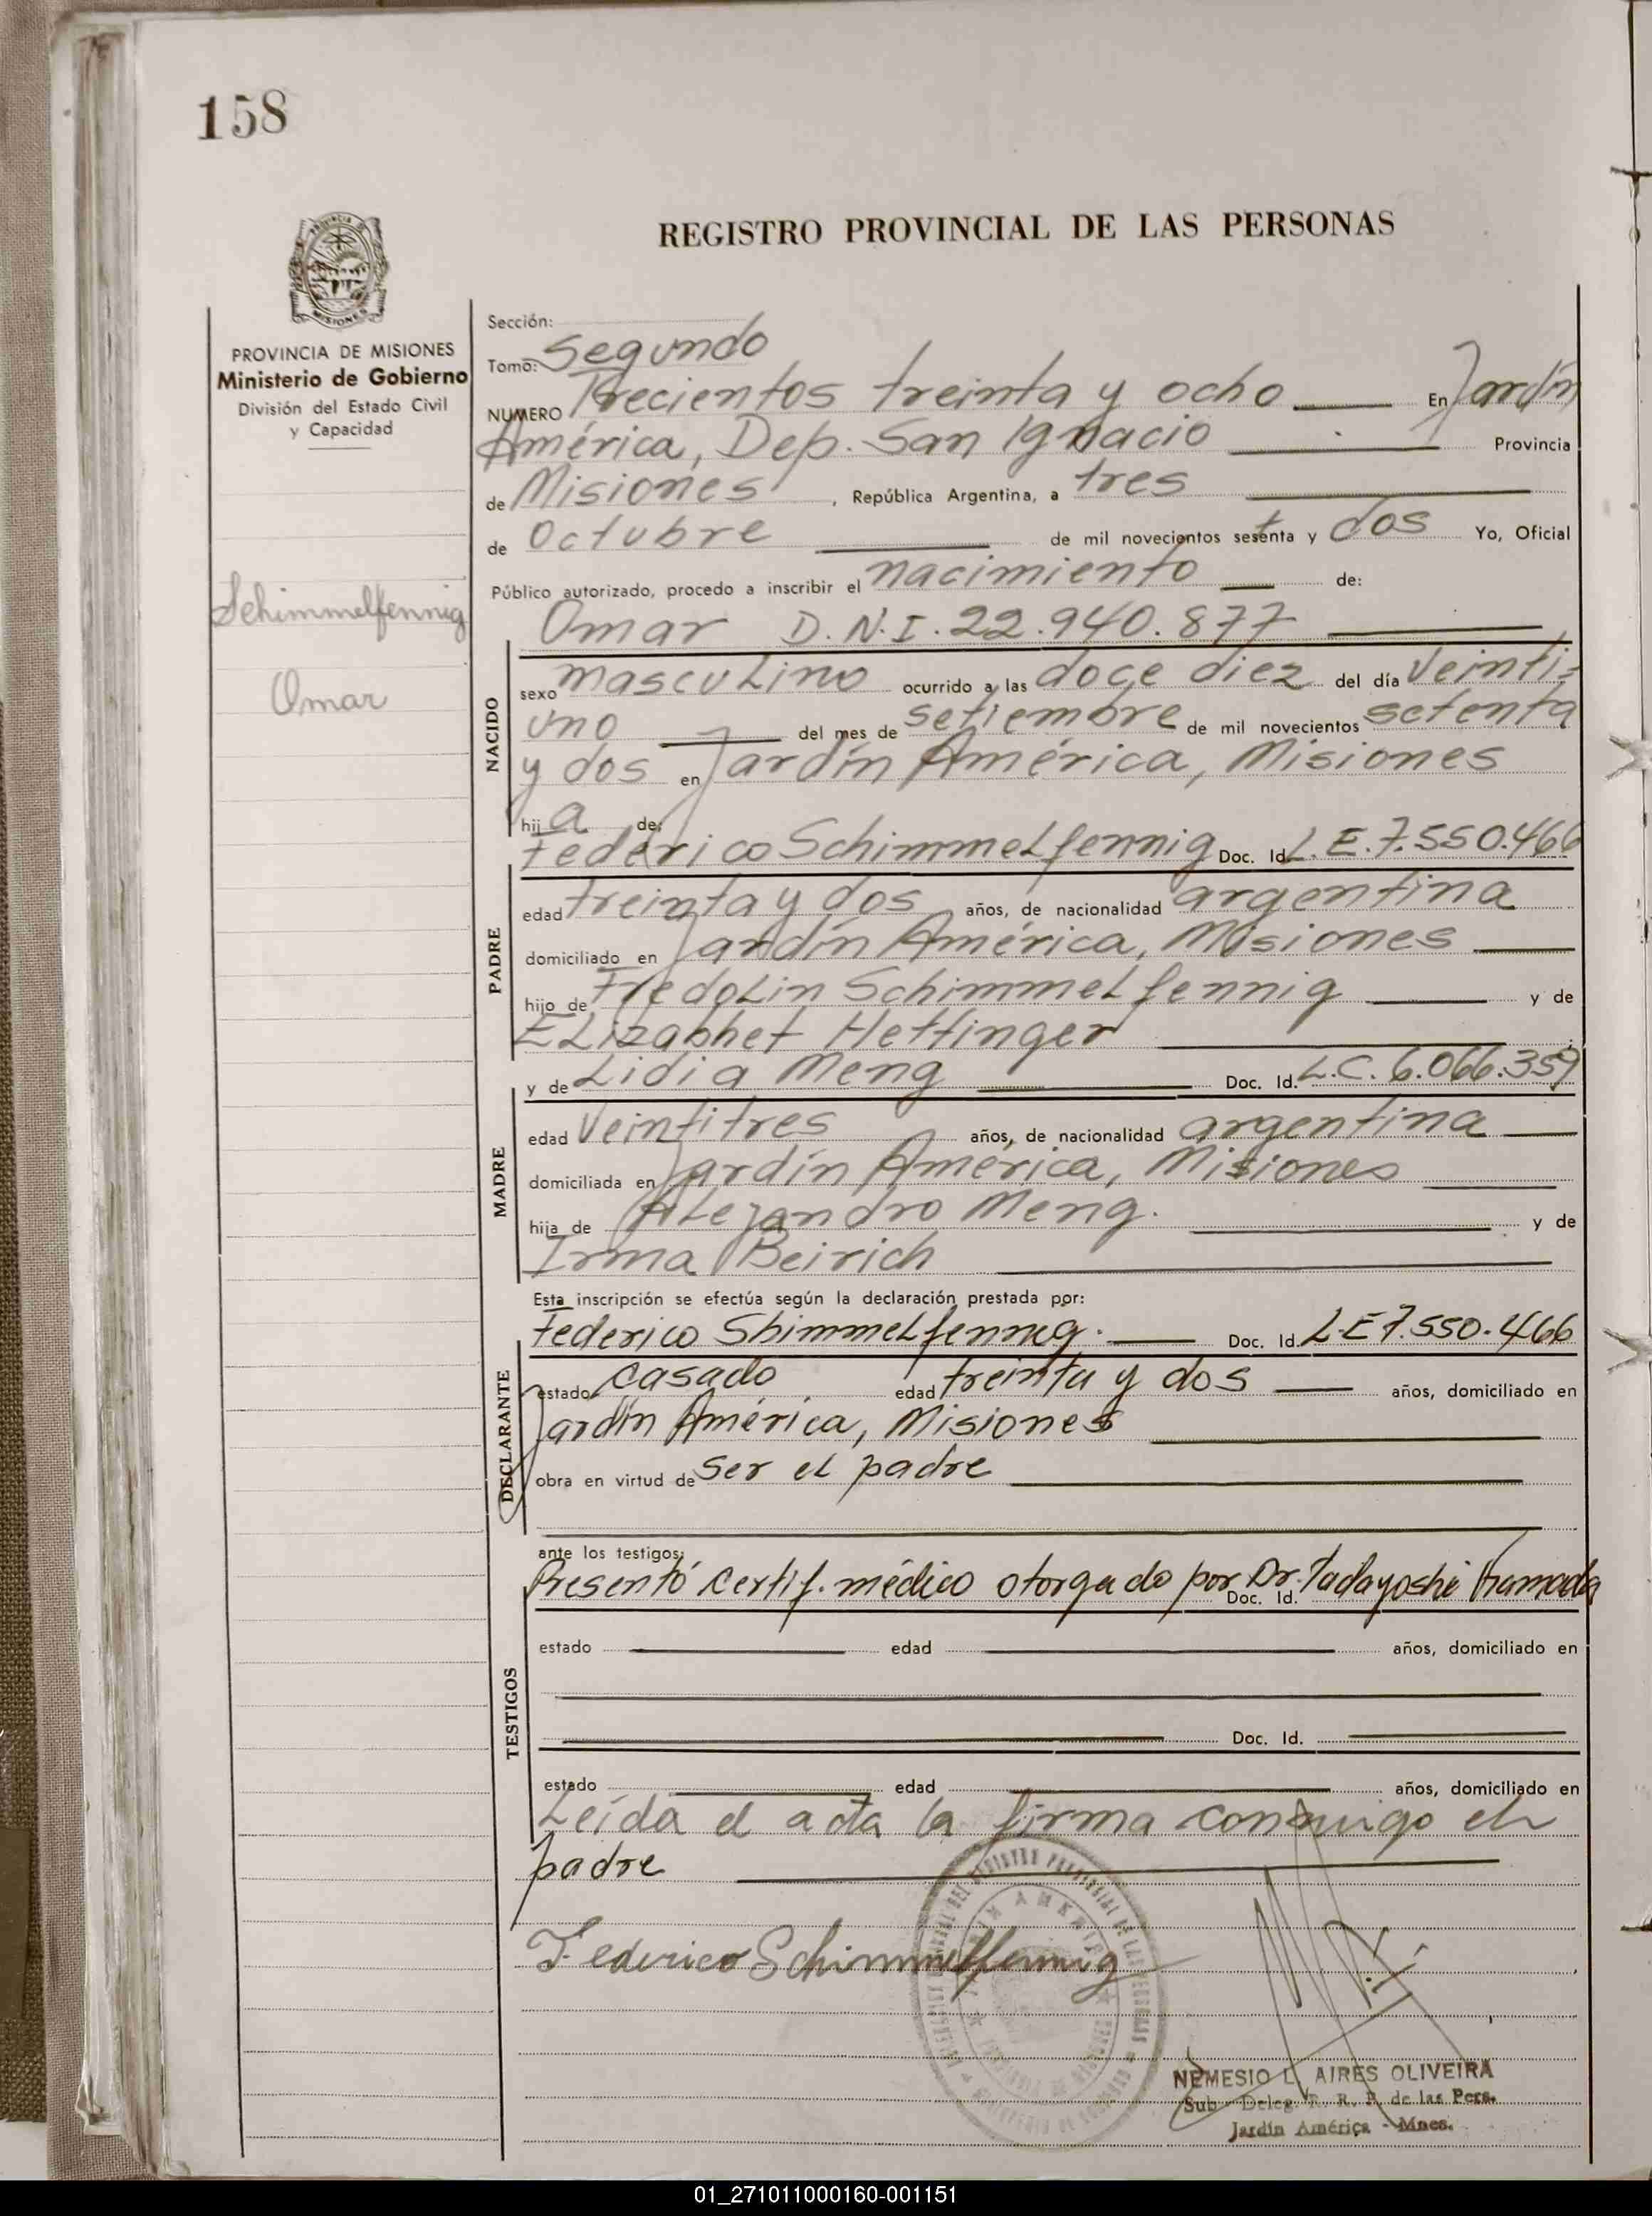 158
REGISTRO PROVINCIAL DE LAS PERSONAS
PROVINCIA DE MISIONES
Ministerio de Gobierno
División del Estado Civil
y Capacidad
Schimmelfennig
Omar
Sección:
Tomo: Segundo
NUMERO Trecientos treinta y ocho En Jardín
América, Dep. San Ignacio Provincia
de Misiones, República Argentina, a tres
de Octubre de mil novecientos setenta y dos Yo, Oficial
Público autorizado, procedo a inscribir el nacimiento de:
Omar D.N.I. 22.940.877
NACIDO
sexo masculino ocurrido a las doce diez del día veinti-
uno del mes de setiembre de mil novecientos setenta
y dos en Jardín América, Misiones
hij a de:
Federico Schimmelfennig Doc. Id. L.E. 7.550.466
PADRE
edad treinta y dos años, de nacionalidad argentina
domiciliado en Jardín América, Misiones
hijo de Fredolin Schimmelfennig y de
Elizabhet Hettinger
y de Lidia Meng Doc. Id. L.C. 6.066.359
MADRE
edad veintitres años, de nacionalidad argentina
domiciliada en Jardín América, Misiones
hija de Alejandro Meng. y de
Irma Beirich
Esta inscripción se efectúa según la declaración prestada por:
Federico Shimmelfennig. Doc. Id. L.E 7.550.466
DECLARANTE
estado casado edad treinta y dos años, domiciliado en
Jardín América, Misiones
obra en virtud de ser el padre
ante los testigos:
Presentó certif. médico otorgado por Dr. Tadayoshi Doc. Id.
TESTIGOS
estado edad años, domiciliado en
Doc. Id.
estado edad años, domiciliado en
Leída el acta la firma conmigo el
padre
Federico Schimmelfennig
NEMESIO L. AIRES OLIVEIRA
Sub-Deleg. R. P. de las Pers.
Jardín América - Mnes.
01_271011000160-001151